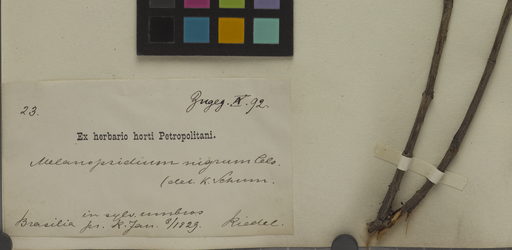 23.
Zugeg. X. 92.
Ex herbario horti Petropolitani.
Melanopsidium nigrum Cels.
(det. K. Schum.
in sylv. umbros
Brasilia pr. R. Jan. 9/1823. Riedel.